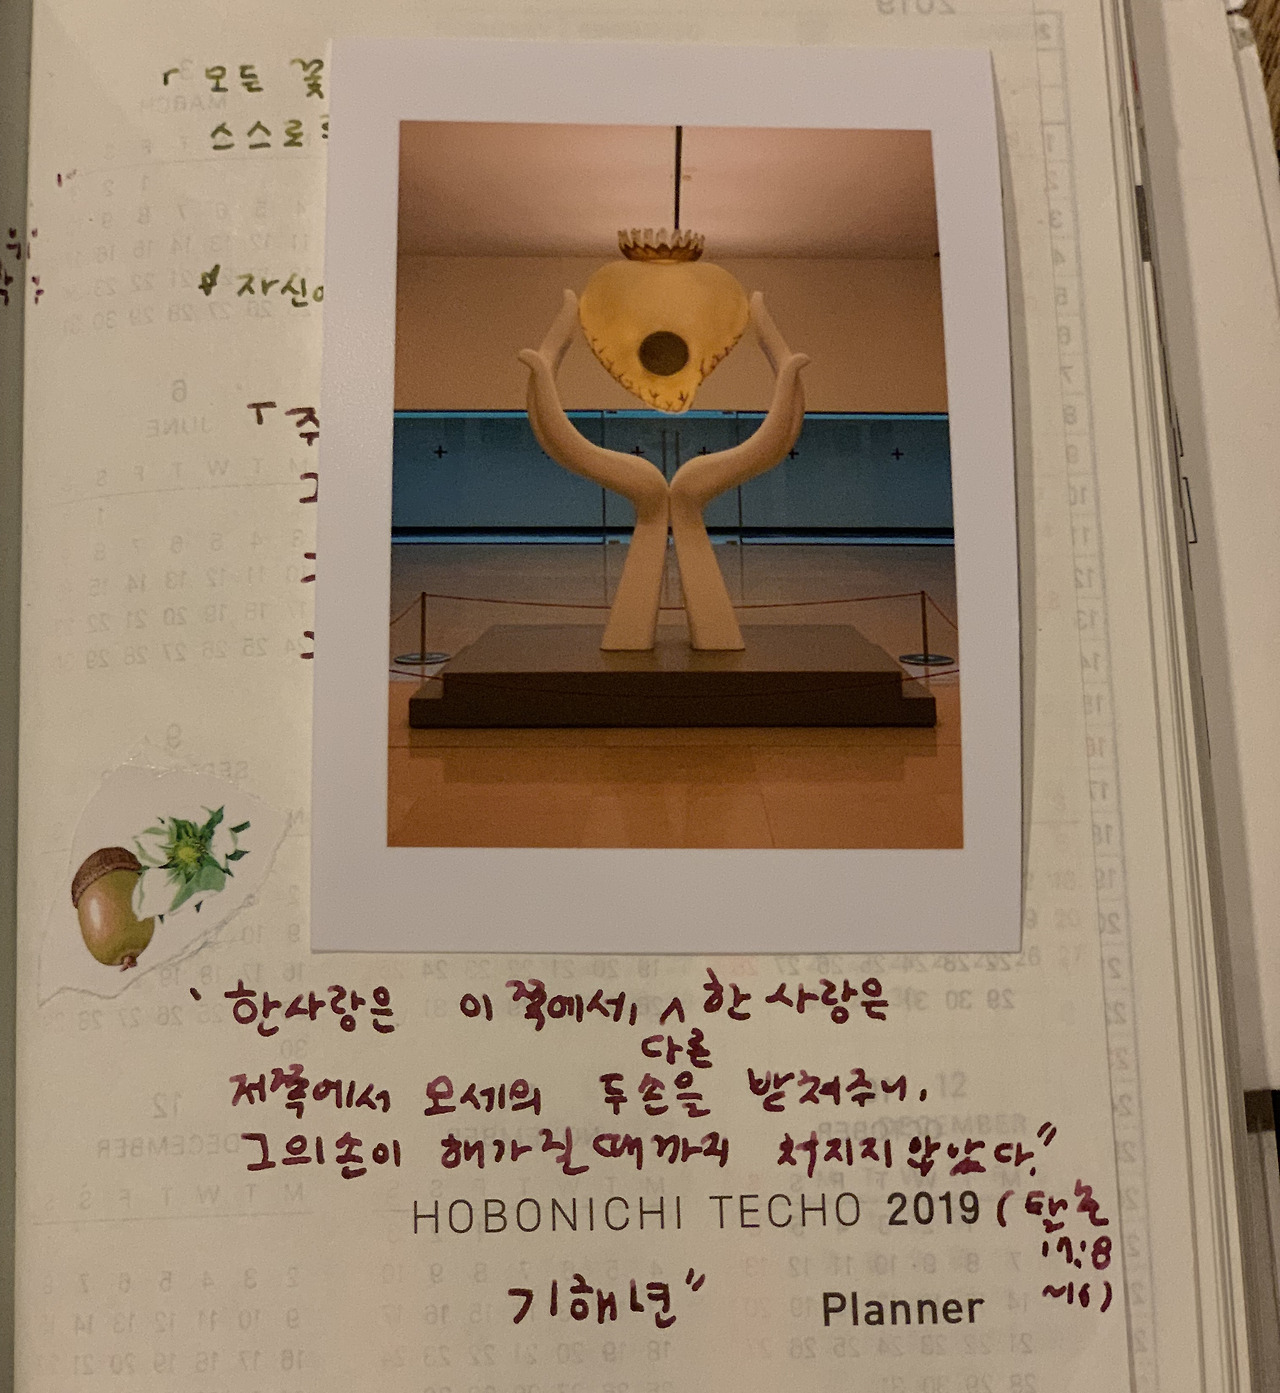 「모든 꽃
스스로
자신
「주
그
한사랑은 이 쪽에서, ^ 한 사랑은
다른
저쪽에서 모세의 두손을 받쳐주니,
그의손이 해가 질 때까지 처지지 않았다."
HOBONICHI TECHO 2019 (탈출
17:8
~16)
기해년"
Planner